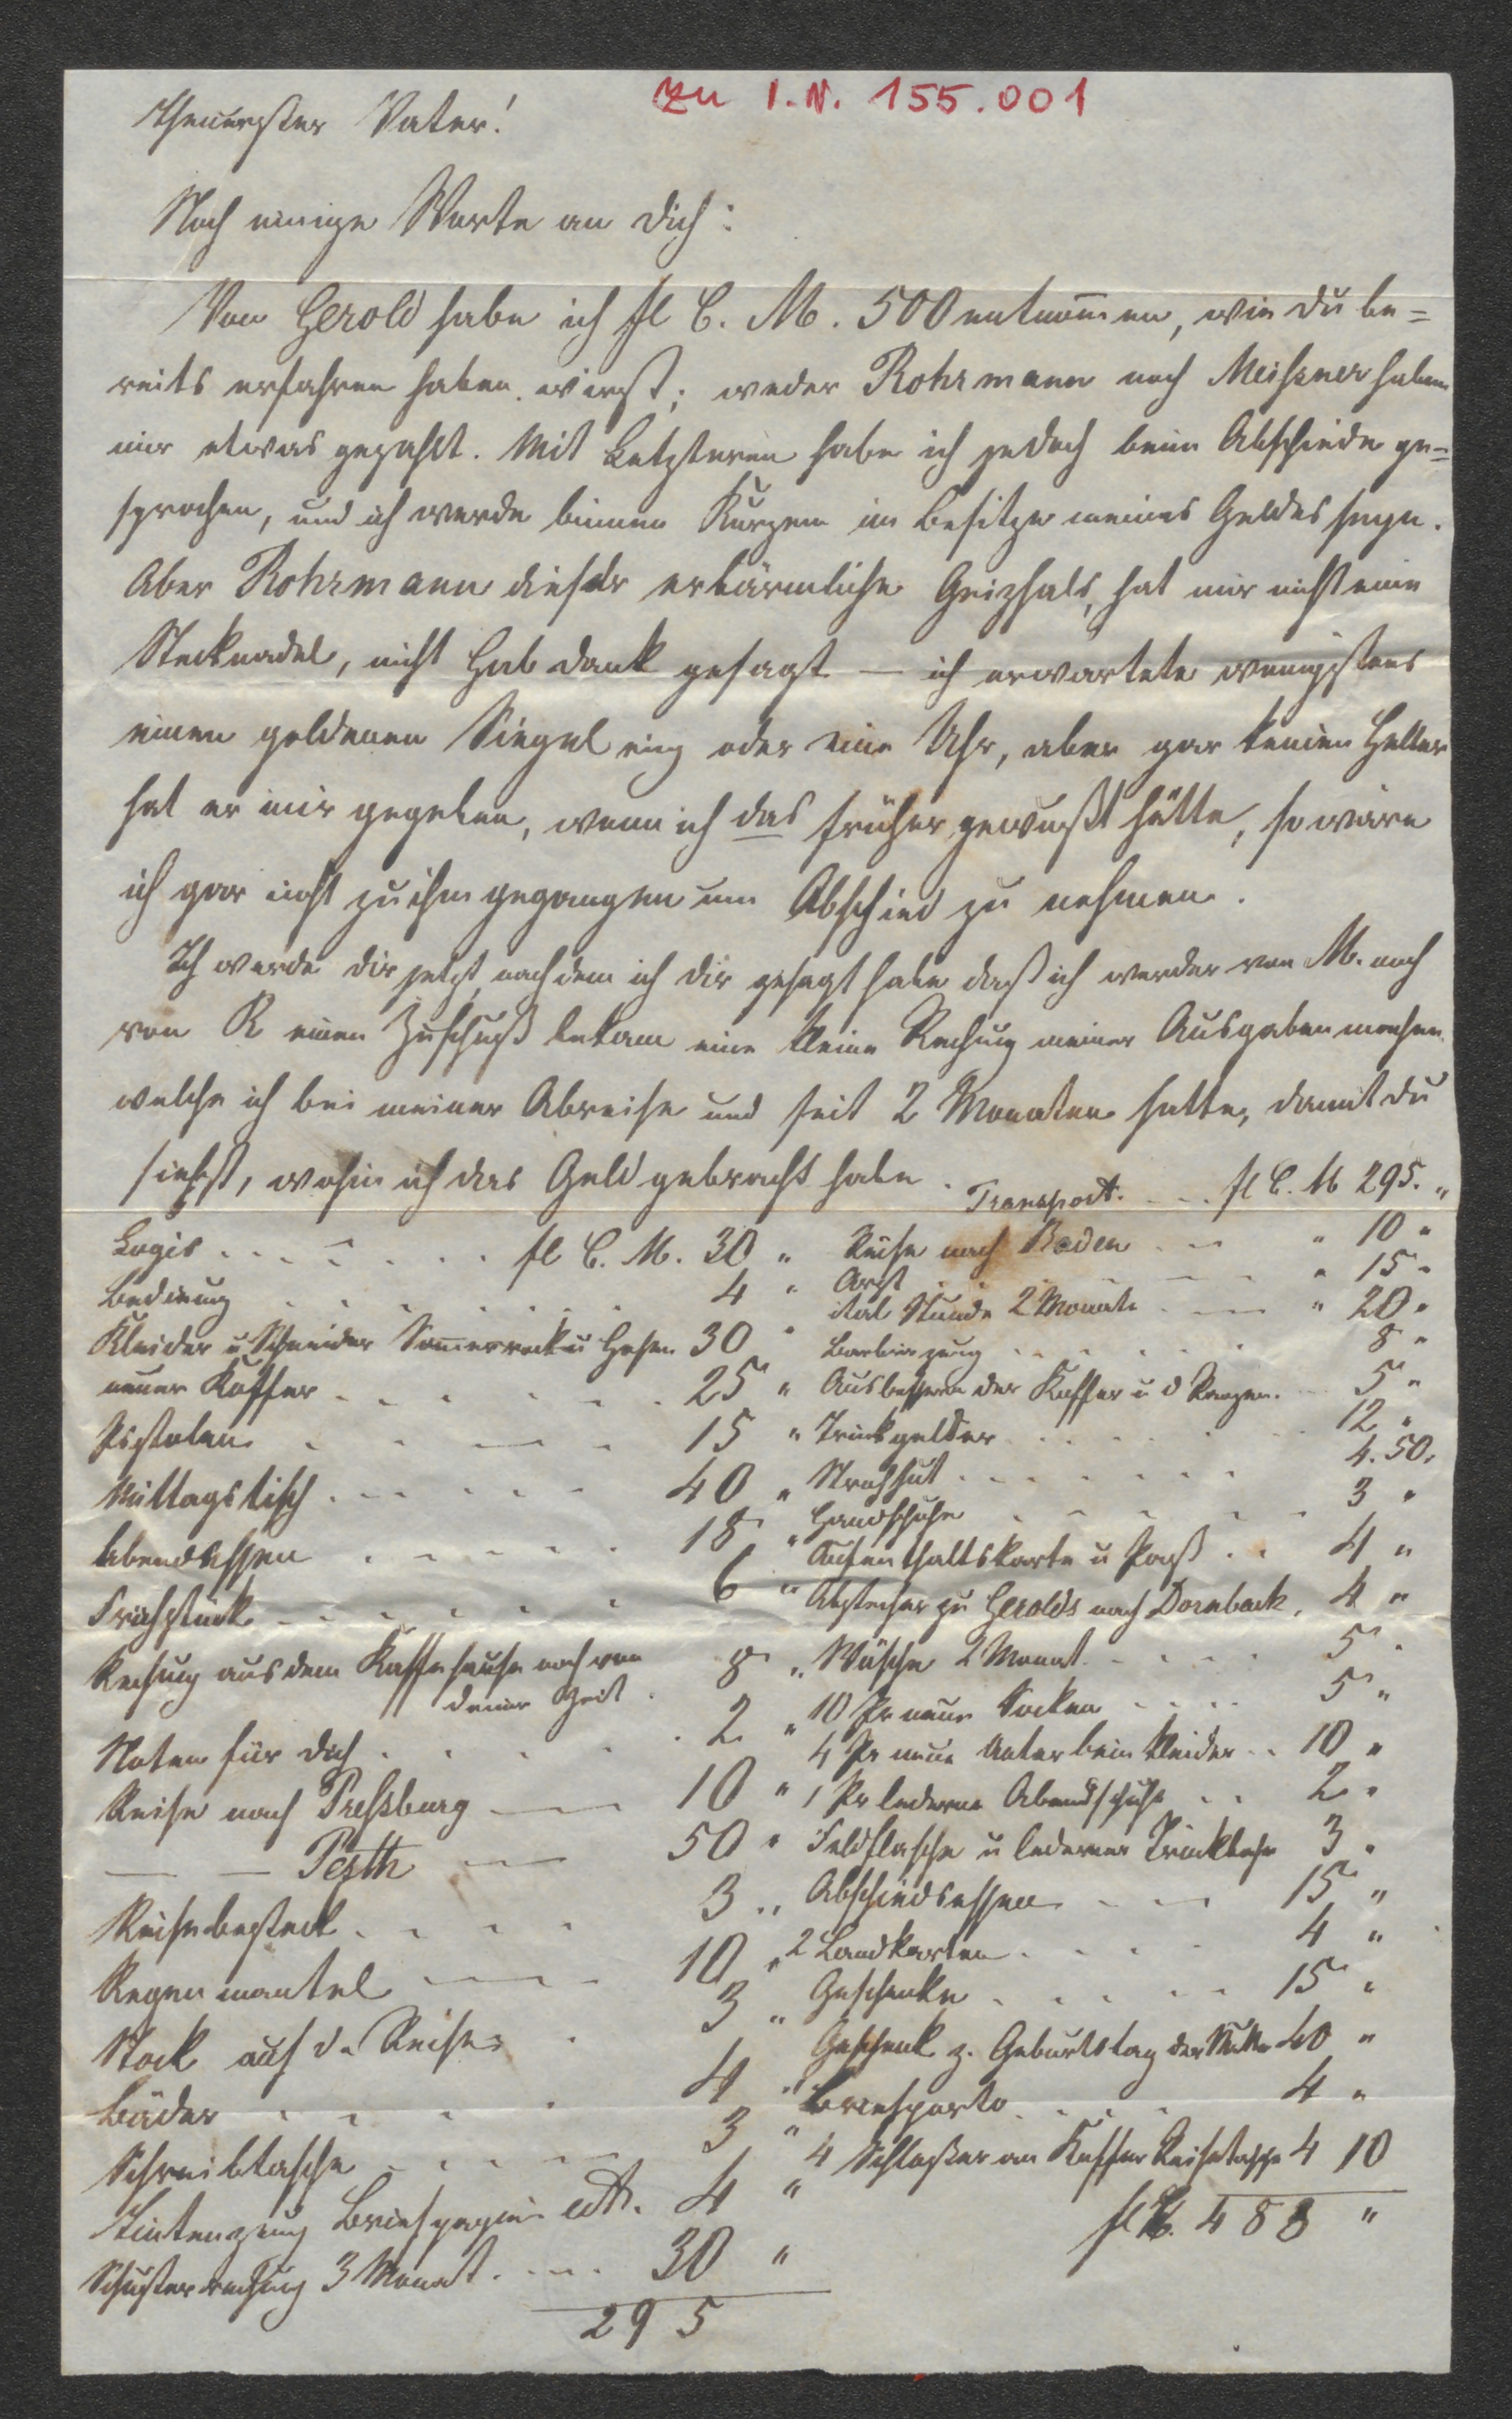 Zu I.N. 155.001
Theuerster Vater!
Noch einige Worte an dich:
Von Gerold habe ich fl C. M. 500 entnom̅en, wie du be=
reits erfahren haben wirst; weder Rohrmann noch Meißner haben
mir etwas gezahlt. Mit Letzteren habe ich jedoch beim Abschiede ge=
sprochen, und ich werde binnen Kurzem im Besitze meines Geldes seyn.
Aber Rohrmann dieser erbärmliche Geizhals, hat mir nicht eine
Stecknadel, nicht Hab dank gesagt — ich erwartete wenigstens
einen goldenen Siegelring oder eine Uhr, aber gar keinen Heller
hat er mir gegeben, wenn ich das früher gewußt hätte, so wäre
ich gar nicht zu ihm gegangen um Abschied zu nehmen.
Ich werde dir jetzt, nachdem ich dir gesagt habe daß ich weder von M. noch
von R einen Zuschuß bekam eine kleine Rechnung meiner Ausgaben machen
welche ich bei meiner Abreise und seit 2 Monaten hatte, damit du
siehst, wohin ich das Geld gebracht habe.
Logis . . . . . . fl C. M. 30 "
Bedienung . . . . . . 4 "
Kleider u Schneider Som̅errock u Hosen 30 "
neuer Koffer . . . . . . 25 "
Pistolen . . . . 15 "
Mittagstisch . . . . . . 40 "
Abendessen . . . . . . 18 "
Frühstück . . . . . . 6 "
Rechnung aus dem Kaffehause noch von
deiner Zeit . 8 "
Noten für dich . . . . . 2 "
Reise nach Preßburg — 10 "
— — Pesth — 50 "
Reisebesteck . . . . . 3 "
Regenmantel — 10 "
Stock auf d. Reise . 3 "
Bäder . . . . 4 "
Schreibtasche . . . . 3 "
Tintenzeug Briefpapier ect. 4 "
Schusterrechnung 3 Monat . . . . 30 "
295
Transport . . . fl C. M 295. "
Reise nach Baden . . " 10 "
Arzt . . . . " 15 "
ital Stunde 2 Monate . . " 20 "
Barbierzeug . . . . . . 8 "
Ausbessern der Koffer u d 5 "
Trinkgelder . . . . . . 12 "
Strohhut . . . . . . . 4. 50.
Handschuhe . . . . . . 3 "
Aufenthaltskarte u Paß . . 4 "
Abstecher zu Gerolds nach Dornback. 4 "
Wäsche 2 Monat . . . . . 5 "
10 Pr neue Socken . . . . 5 "
4 Pr neue Unterbeinkleider . . 10 "
1 Pr lederne . . 2 "
Feldflasche u lederner 3 "
Abschiedsessen . . . 15 "
2 Landkarten . . . . . 4 "
Geschenke . . . . . 15 "
Geschenk z. Geburtstag der Mutter 40 "
Briefporto . . . . . 4 "
4 Schlößer am Koffer Reisetasche 4 10
fl 488 "